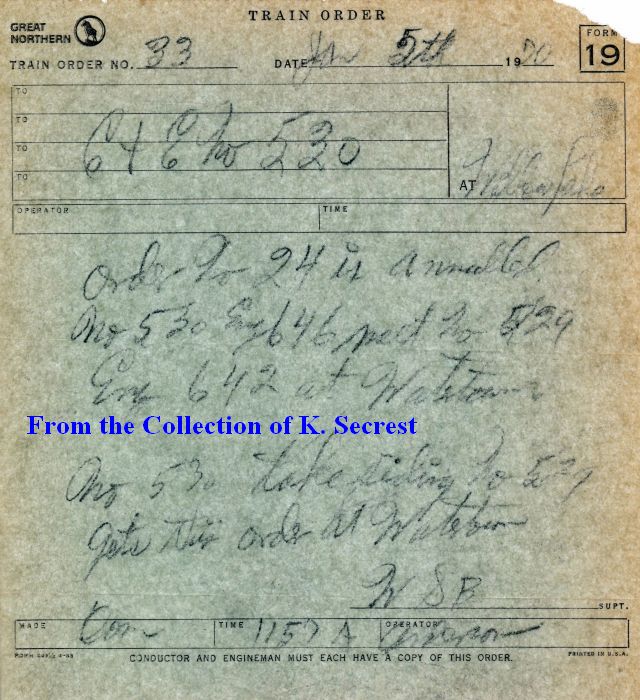 TRAIN ORDER
GREAT NORTHERN
FORM 19
TRAIN ORDER NO. 33 DATE Jan 5th 1970
TO
TO
TO C & E No 530
TO
AT
OPERATOR TIME
Order No 24 is annulled.
No 530 Eng 646 meet No 529
Eng 642 at Watertown
From the Collection of K. Secrest
No 530 take siding No 529
gets this order at Watertown
W S B
SUPT.
MADE Com TIME 1157 A OPERATOR
PRINTED IN U.S.A.
CONDUCTOR AND ENGINEMAN MUST EACH HAVE A COPY OF THIS ORDER.